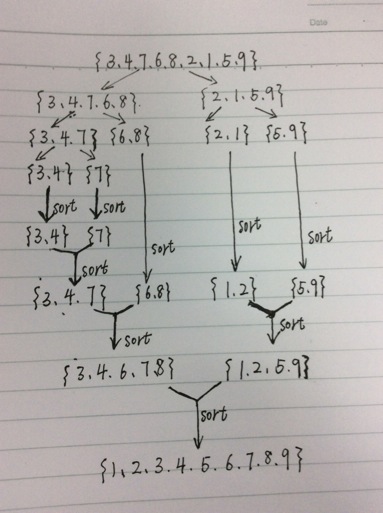 Date
{3.4.7.6.8.2.1.5.9}
{3.4.7.6.8} {2.1.5.9}
{3.4.7} {6.8} {2.1} {5.9}
{3.4} {7}
sort sort
{3.4} {7} sort sort
sort
{3.4.7} {6.8} {1.2} {5.9}
sort sort
{3.4.6.7.8} {1.2.5.9}
sort
{1,2.3.4.5.6.7.8.9}